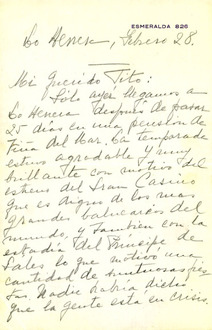 ESMERALDA 826
Lo Herrera, Febrero 28.
Mi Querido Tito:
Sólo ayer llegamos a
Lo Herrera después de pasar
25 días en una pensión de
Viña del Mar. La temporada
estuvo agradable y muy
brillante con motivo del
estreno del Gran Casino
que es digno de los mas
grandes balnearios del
mundo, y tambien con la
estadía del Principe de
Gales lo que motivó una
cantidad de suntuosas fies-
tas. Nadie habría dicho
que la gente está en crisis.